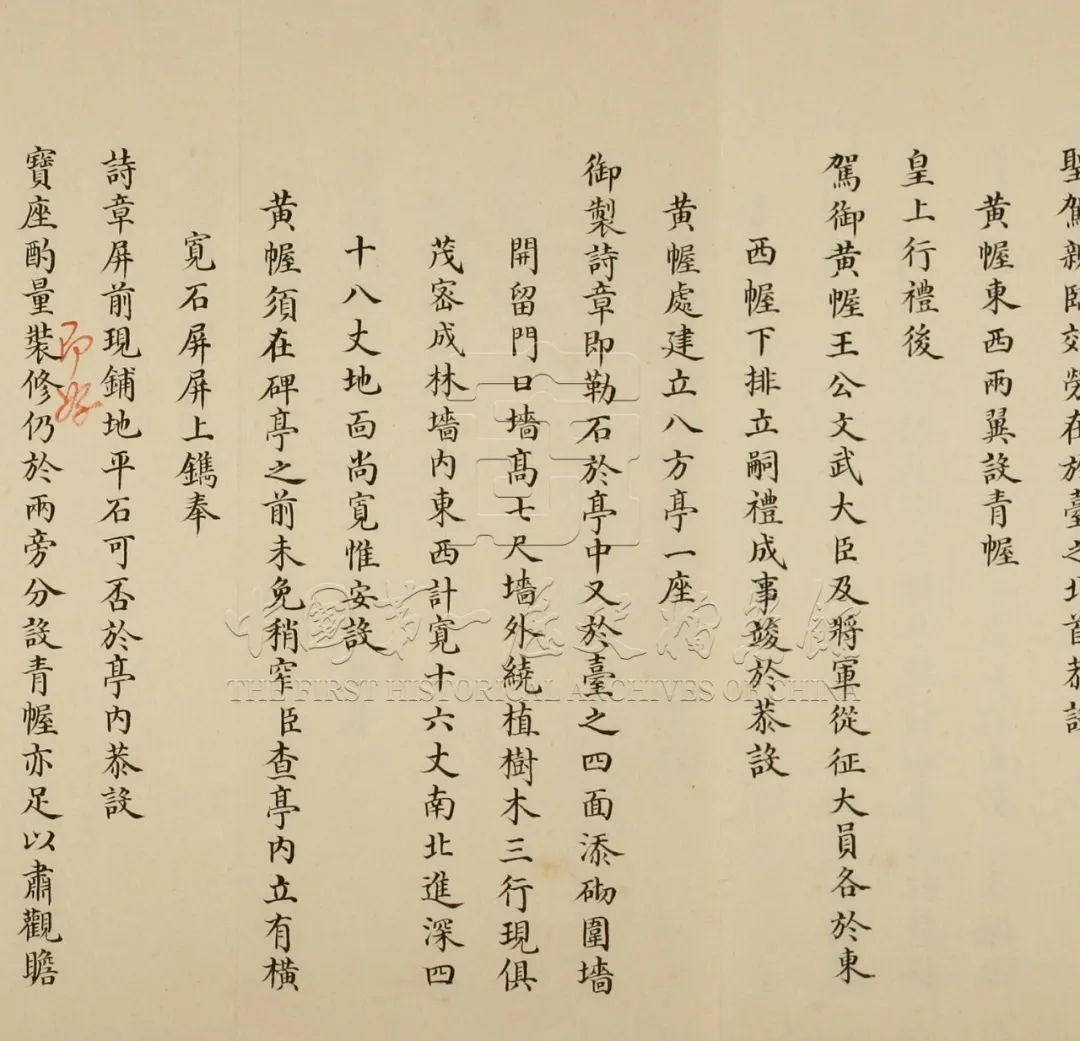 聖駕親臨郊勞在於臺之北首恭設
黃幄東西兩翼設青幄
皇上行禮後
駕御黃幄王公文武大臣及將軍從征大員各於東
西幄下排立嗣禮成事竣於恭設
黃幄處建立八方亭一座
御製詩章即勒石於亭中又於臺之四面添砌圍墻
開留門口墻高七尺墻外繞植樹木三行現俱
茂密成林墻內東西計寬十六丈南北進深四
十八丈地面尚寬惟安設
黃幄須在碑亭之前未免稍窄臣查亭內立有橫
寬石屏屏上鐫奉
詩章屏前現鋪地平石可否於亭內恭設
即好
寶座酌量裝修仍於兩旁分設青幄亦足以肅觀瞻
中國第一歷史檔案館
THE FIRST HISTORICAL ARCHIVES OF CHINA